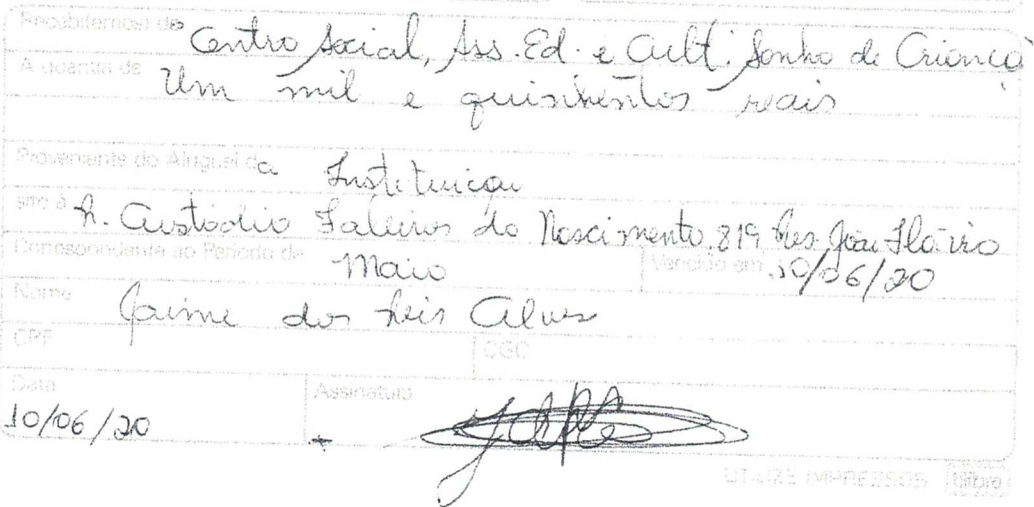 Recebi(emos) de Centro Social, Ass. Ed. e Cult. Sonho de Criança
A quantia de Um mil e quinhentos reais
Proveniente do Aluguel da Instituição
sito à R. Custódio Faleiros do Nascimento 819 Res. João Flávio
Correspondente ao Período de Maio Vencido em 10/06/20
Nome Jaime dos Reis Alves
CPF CGC
Data Assinatura
10/06/20
UTILIZE IMPRESSOS tilibra